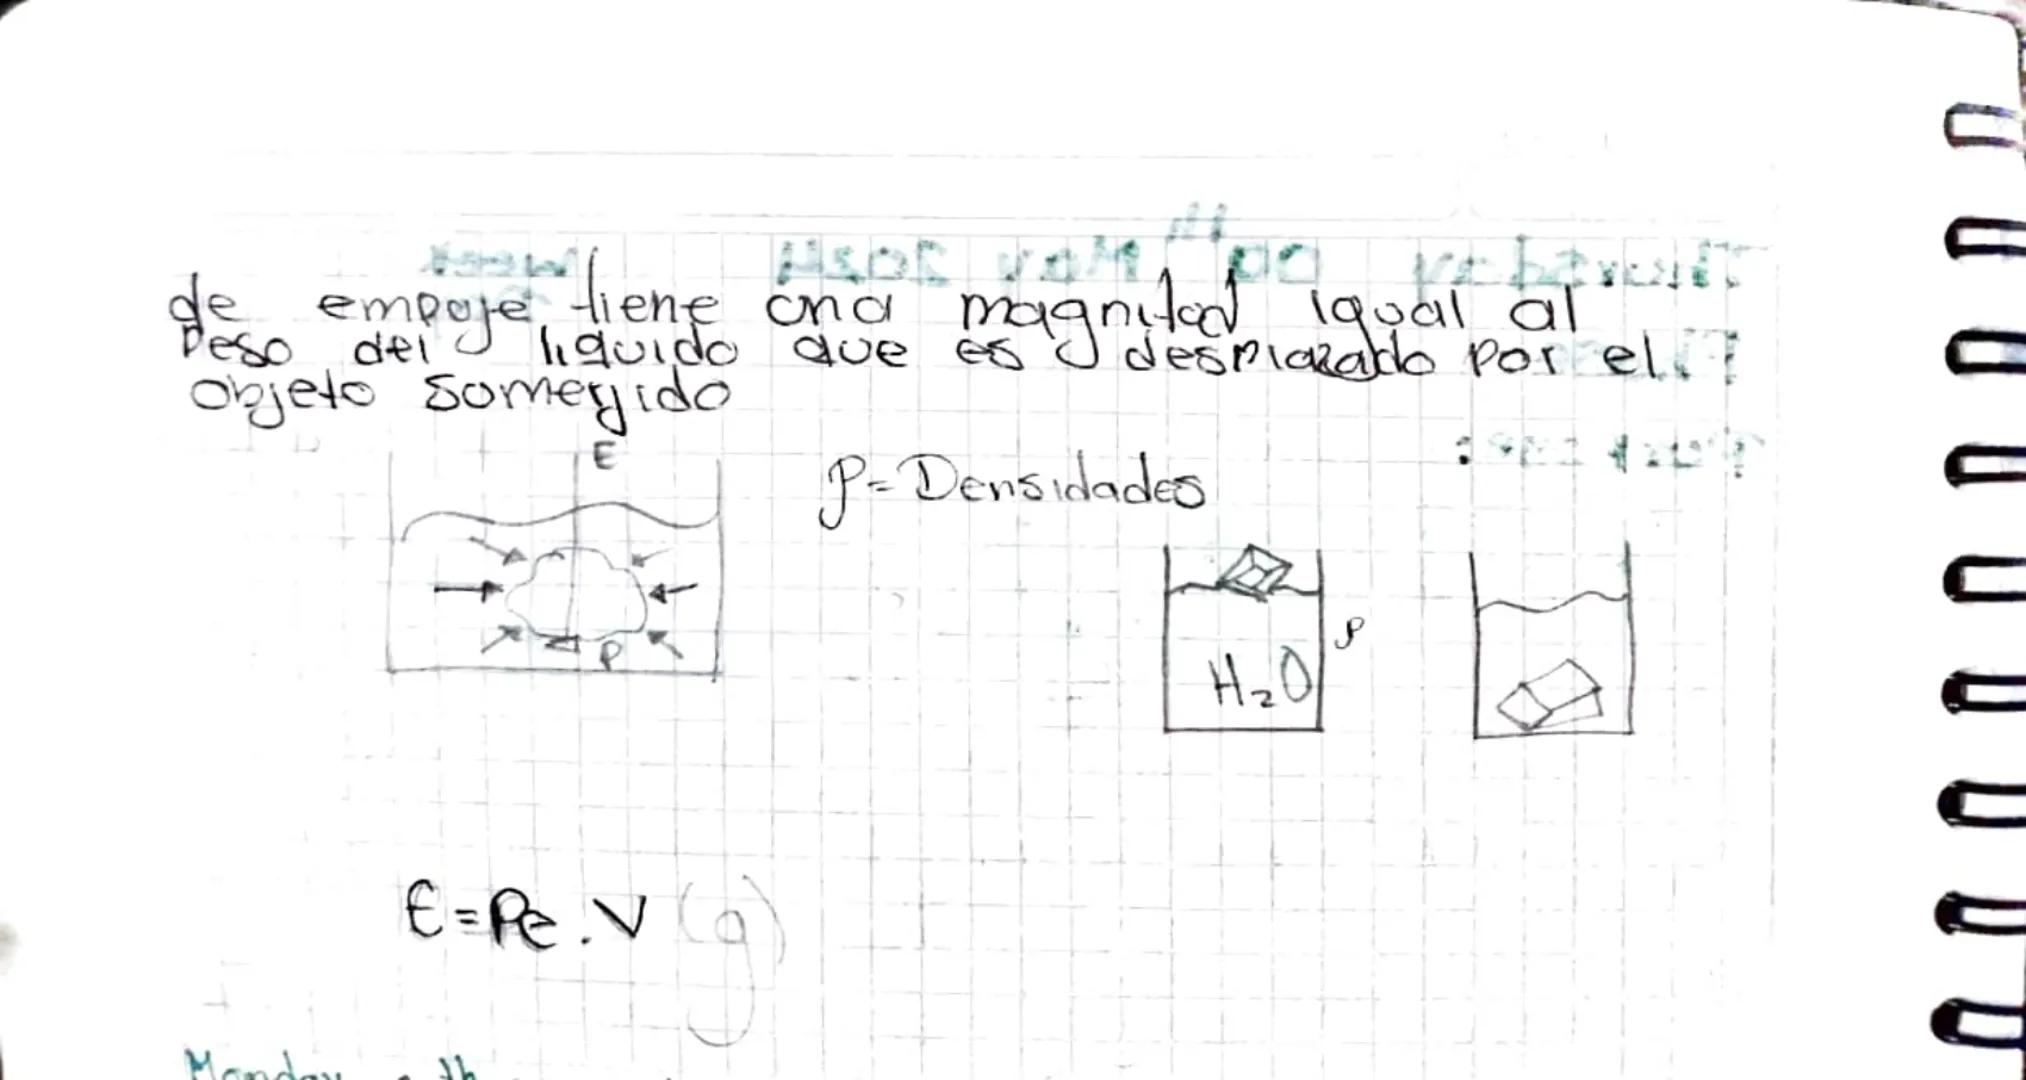 de empuje tiene una magnitud igual al
peso del liquido que es desplazado por el
objeto somerjido
E
ρ= Densidades
P
H₂O
ρ
E=Pe.V (g)
Monday th